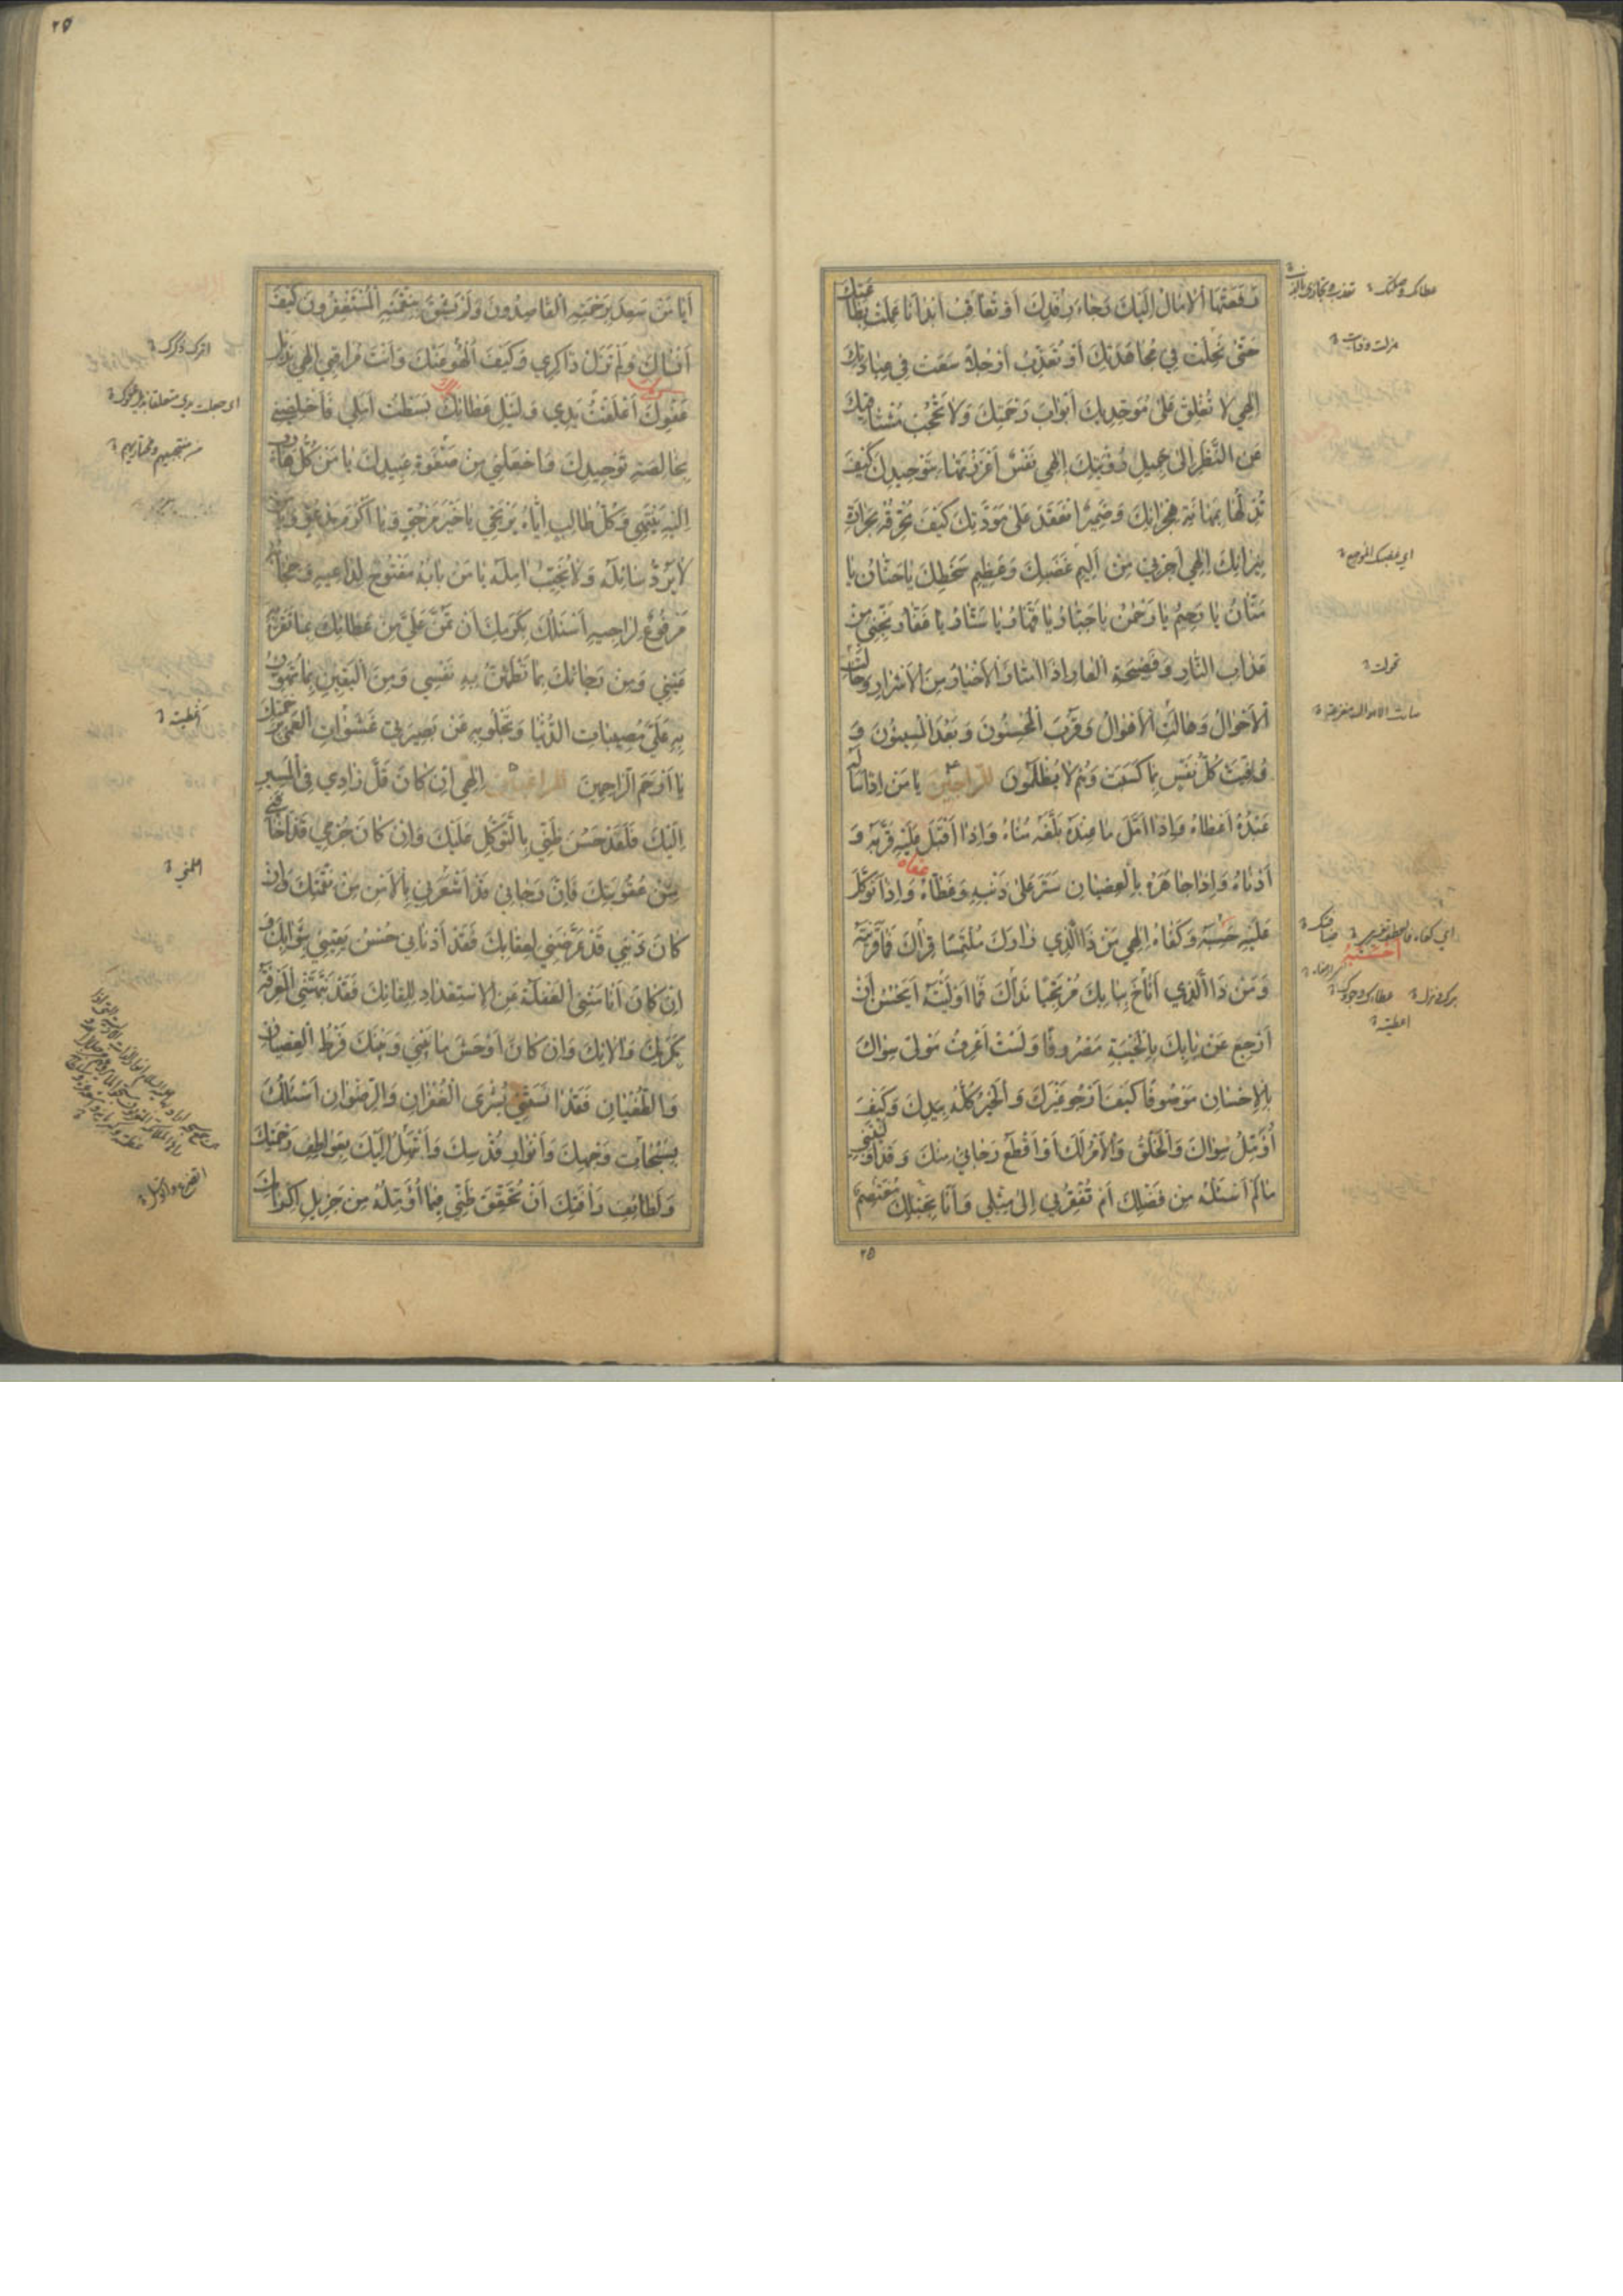 رَفَعَتْهَا الْآمَالُ إِلَيْكَ رَجَاءَ رَأْفَتِكَ أَوْ تُعَاقِبُ أَبْدَانًا عَمِلَتْ بِطَاعَتِكَ
حَتّىٰ نَحِلَتْ فِي مُجَاهَدَتِكَ أَوْ تُعَذِّبُ أَرْجُلًا سَعَتْ فِي عِبَادَتِكَ
إِلٰهِي لَا تُغْلِقْ عَلىٰ مُوَحِّدِيكَ أَبْوَابَ رَحْمَتِكَ وَلَا تَحْجُبْ مُشْتَاقِيكَ
عَنِ النَّظَرِ إِلىٰ جَمِيلِ رُؤْيَتِكَ إِلٰهِي نَفْسٌ أَعْزَزْتَهَا بِتَوْحِيدِكَ كَيْفَ
تُذِلُّهَا بِمَهَانَةِ هِجْرَانِكَ وَضَمِيرٌ انْعَقَدَ عَلىٰ مَوَدَّتِكَ كَيْفَ تُحْرِقُهُ بِحَرَارَةِ
نِيرَانِكَ إِلٰهِي أَجِرْنِي مِنْ أَلِيمِ غَضَبِكَ وَعَظِيمِ سَخَطِكَ يَا حَنَّانُ يَا
مَنَّانُ يَا رَحِيمُ يَا رَحْمٰنُ يَا جَبَّارُ يَا قَهَّارُ يَا سَتَّارُ يَا غَفَّارُ نَجِّنِي مِنْ
عَذَابِ النَّارِ وَفَضِيحَةِ الْعَارِ إِذَا امْتَازَ الْأَخْيَارُ مِنَ الْأَشْرَارِ وَحَالَتِ
الْأَحْوَالُ وَهَالَتِ الْأَهْوَالُ وَقَرُبَ الْمُحْسِنُونَ وَبَعُدَ الْمُسِيئُونَ وَ
وُفِّيَتْ كُلُّ نَفْسٍ مَا كَسَبَتْ وَهُمْ لَا يُظْلَمُونَ للراجين يَا مَنْ إِذَا سَأَلَهُ
عَبْدُهُ أَعْطَاهُ وَإِذَا أَمَّلَ مَا عِنْدَهُ بَلَّغَهُ مُنَاهُ وَإِذَا أَقْبَلَ عَلَيْهِ قَرَّبَهُ وَ
أَدْنَاهُ وَإِذَا جَاهَرَهُ بِالْعِصْيَانِ سَتَرَ عَلىٰ ذَنْبِهِ وَغَطَّاهُ وَإِذَا تَوَكَّلَ
عَلَيْهِ حَسْبُهُ وَكَفَاهُ إِلٰهِي مَنْ ذَا الَّذِي نَزَلَ بِكَ مُلْتَمِسًا قِرَاكَ فَمَا قَرَيْتَهُ
وَمَنْ ذَا الَّذِي أَنَاخَ بِبَابِكَ مُرْتَجِيًا نَدَاكَ فَمَا أَوْلَيْتَهُ أَيَحْسُنُ أَنْ
أَرْجِعَ عَنْ بَابِكَ بِالْخَيْبَةِ مَصْرُوفًا وَلَسْتُ أَعْرِفُ مَوْلًى سِوَاكَ
بِالْإِحْسَانِ مَوْصُوفًا كَيْفَ أَرْجُو غَيْرَكَ وَالْخَيْرُ كُلُّهُ بِيَدِكَ وَكَيْفَ
أُؤَمِّلُ سِوَاكَ وَالْخَلْقُ وَالْأَمْرُ لَكَ أَأَقْطَعُ رَجَائِي مِنْكَ وَقَدْ أَوْلَيْتَنِي
مَا لَمْ أَسْئَلْهُ مِنْ فَضْلِكَ أَمْ تُفْقِرُنِي إِلىٰ مِثْلِي وَأَنَا بِحَبْلِكَ مُعْتَصِمٌ
٢٥
٢٥
أَيَا مَنْ سَعِدَ بِرَحْمَتِهِ الْقَاصِدُونَ وَلَمْ يَشْقَ بِنِقْمَتِهِ الْمُسْتَغْفِرُونَ كَيْفَ
أَنْسَاكَ وَلَمْ تَزَلْ ذَاكِرِي وَكَيْفَ أَلْهُو عَنْكَ وَأَنْتَ مُرَاقِبِي إِلٰهِي بِذَيْلِ
عَفْوِكَ أَعْلَقْتُ يَدِي وَلِنَيْلِ عَطَائِكَ بَسَطْتُ أَمَلِي فَأَخْلِصْنِي
بِخَالِصَةِ تَوْحِيدِكَ وَاجْعَلْنِي مِنْ صَفْوَةِ عَبِيدِكَ يَا مَنْ كُلُّ هَارِبٍ
إِلَيْهِ يَلْتَجِي وَكُلُّ طَالِبٍ إِيَّاهُ يَرْتَجِي يَا خَيْرَ مَرْجُوٍّ وَيَا أَكْرَمَ مَدْعُوٍّ وَيَا مَنْ
لَا يَرُدُّ سَائِلَهُ وَلَا يُخَيِّبُ آمِلَهُ يَا مَنْ بَابُهُ مَفْتُوحٌ لِدَاعِيهِ وَحِجَابُهُ
مَرْفُوعٌ لِرَاجِيهِ أَسْئَلُكَ بِكَرَمِكَ أَنْ تَمُنَّ عَلَيَّ مِنْ عَطَائِكَ بِمَا تَقَرُّ بِهِ
عَيْنِي وَمِنْ رَجَائِكَ بِمَا تَطْمَئِنُّ بِهِ نَفْسِي وَمِنَ الْيَقِينِ بِمَا تُهَوِّنُ
بِهِ عَلَيَّ مُصِيبَاتِ الدُّنْيَا وَتَجْلُو بِهِ عَنْ بَصِيرَتِي غَشَوَاتِ الْعَمىٰ بِرَحْمَتِكَ
يَا أَرْحَمَ الرَّاحِمِينَ للراغبين إِلٰهِي إِنْ كَانَ قَلَّ زَادِي فِي الْمَسِيرِ
إِلَيْكَ فَلَقَدْ حَسُنَ ظَنِّي بِالتَّوَكُّلِ عَلَيْكَ وَإِنْ كَانَ جُرْمِي قَدْ أَخَافَنِي
مِنْ عُقُوبَتِكَ فَإِنَّ رَجَائِي قَدْ أَشْعَرَنِي بِالْأَمْنِ مِنْ نِقْمَتِكَ وَإِنْ
كَانَ ذَنْبِي قَدْ عَرَّضَنِي لِعِقَابِكَ فَقَدْ آذَنَنِي حُسْنُ يَقِينِي بِثَوَابِكَ وَ
إِنْ كَانَ أَنَامَتْنِي الْغَفْلَةُ عَنِ الْإِسْتِعْدَادِ لِلِقَائِكَ فَقَدْ نَبَّهَتْنِي الْمَعْرِفَةُ
بِكَرَمِكَ وَآلَائِكَ وَإِنْ كَانَ أَوْحَشَ مَا بَيْنِي وَبَيْنَكَ فَرْطُ الْعِصْيَانِ
وَالطُّغْيَانِ فَقَدْ آنَسَنِي بُشْرَى الْغُفْرَانِ وَالرِّضْوَانِ أَسْئَلُكَ
بِسُبُحَاتِ وَجْهِكَ وَأَنْوَارِ قُدْسِكَ وَأَبْتَهِلُ إِلَيْكَ بِعَوَاطِفِ رَحْمَتِكَ
وَلَطَائِفِ رَأْفَتِكَ أَنْ تُحَقِّقَ ظَنِّي فِيمَا أُؤَمِّلُهُ مِنْ جَزِيلِ إِكْرَامِكَ